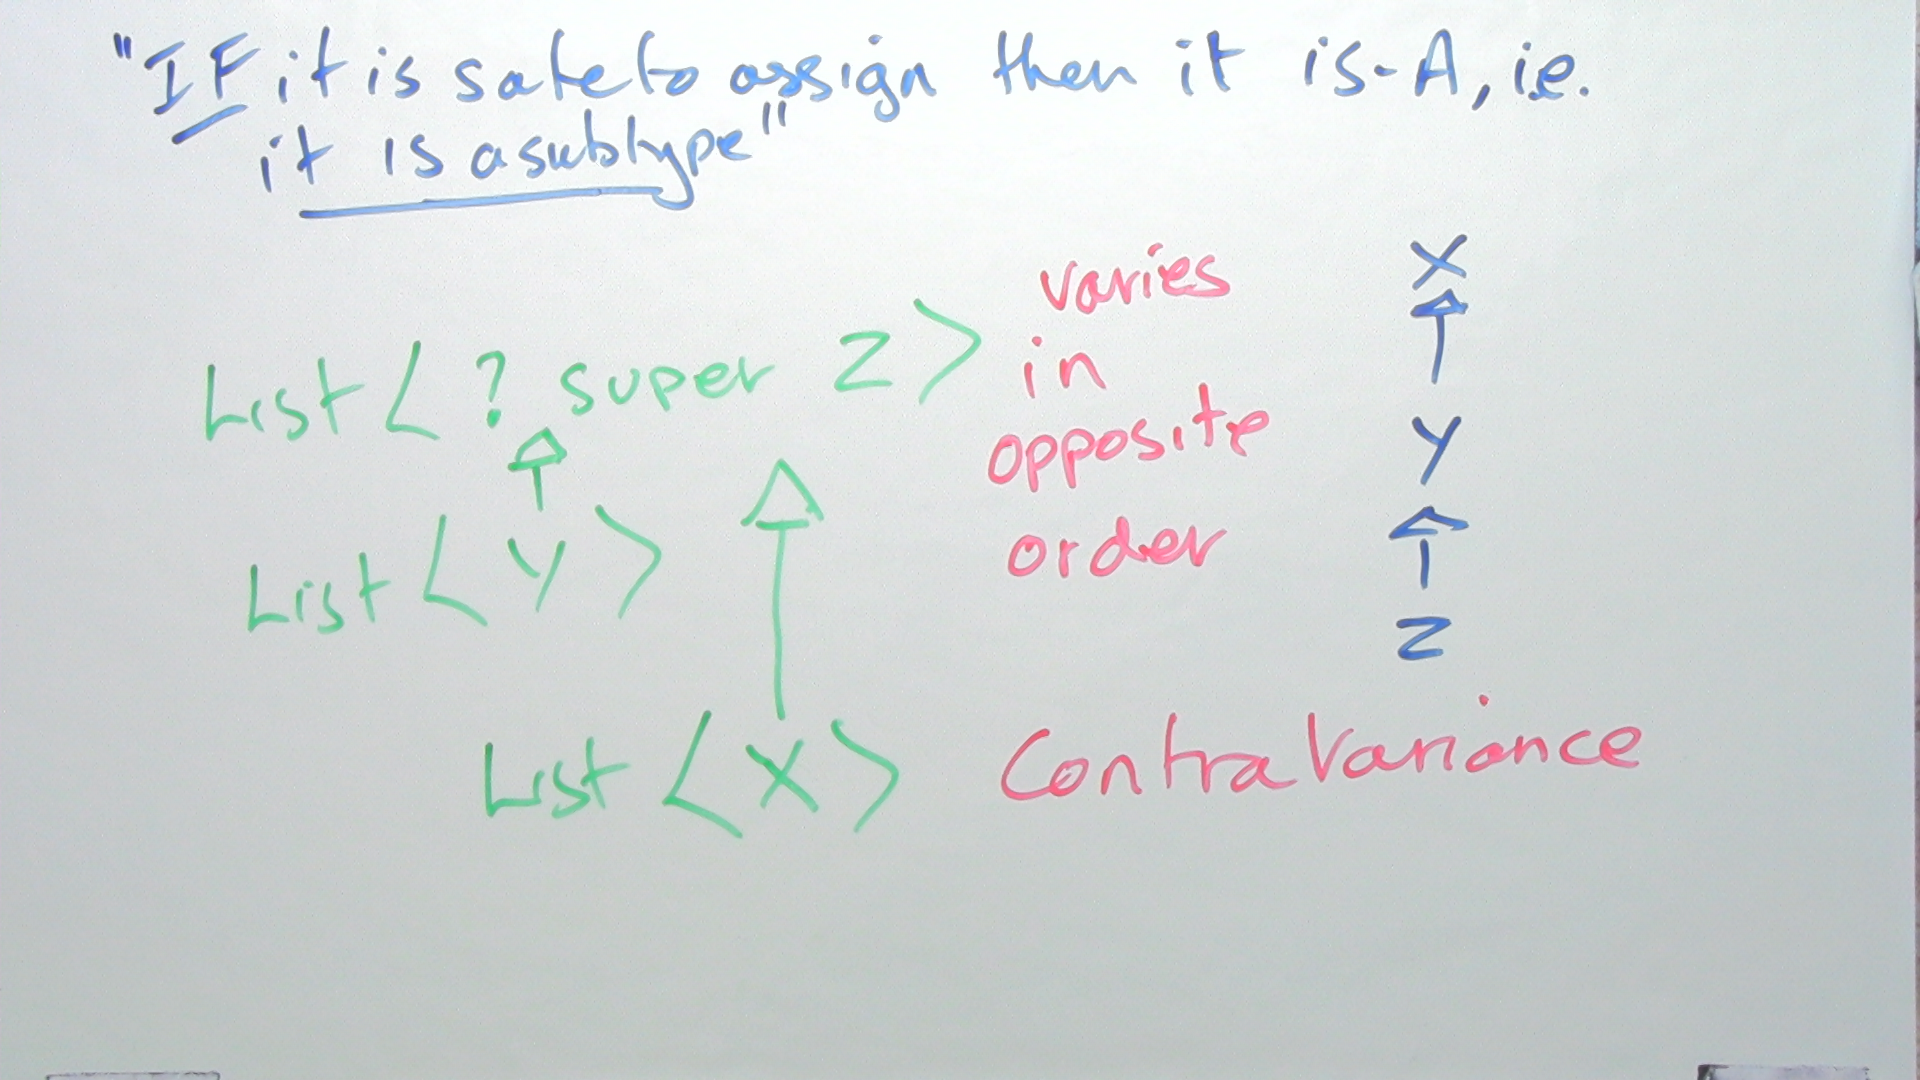 "IF it is safe to assign then it is-A, ie.
it is a subtype"
List < ? super Z >
List < Y >
List < X >
varies
in
opposite
order
X
Y
Z
ContraVariance